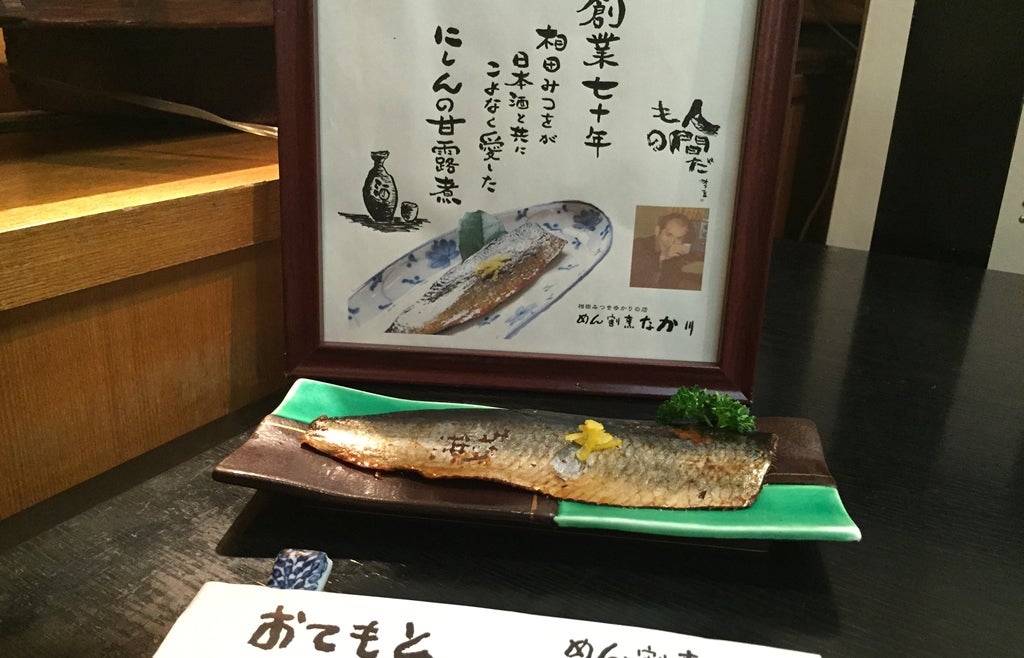 創業七十年
相田みつをが
日本酒と共に
こよなく愛した
にしんの甘露煮
人間だ
もの
みつを
酒
相田みつをゆかりの店
めん割烹なか川
おてもと
めん割烹